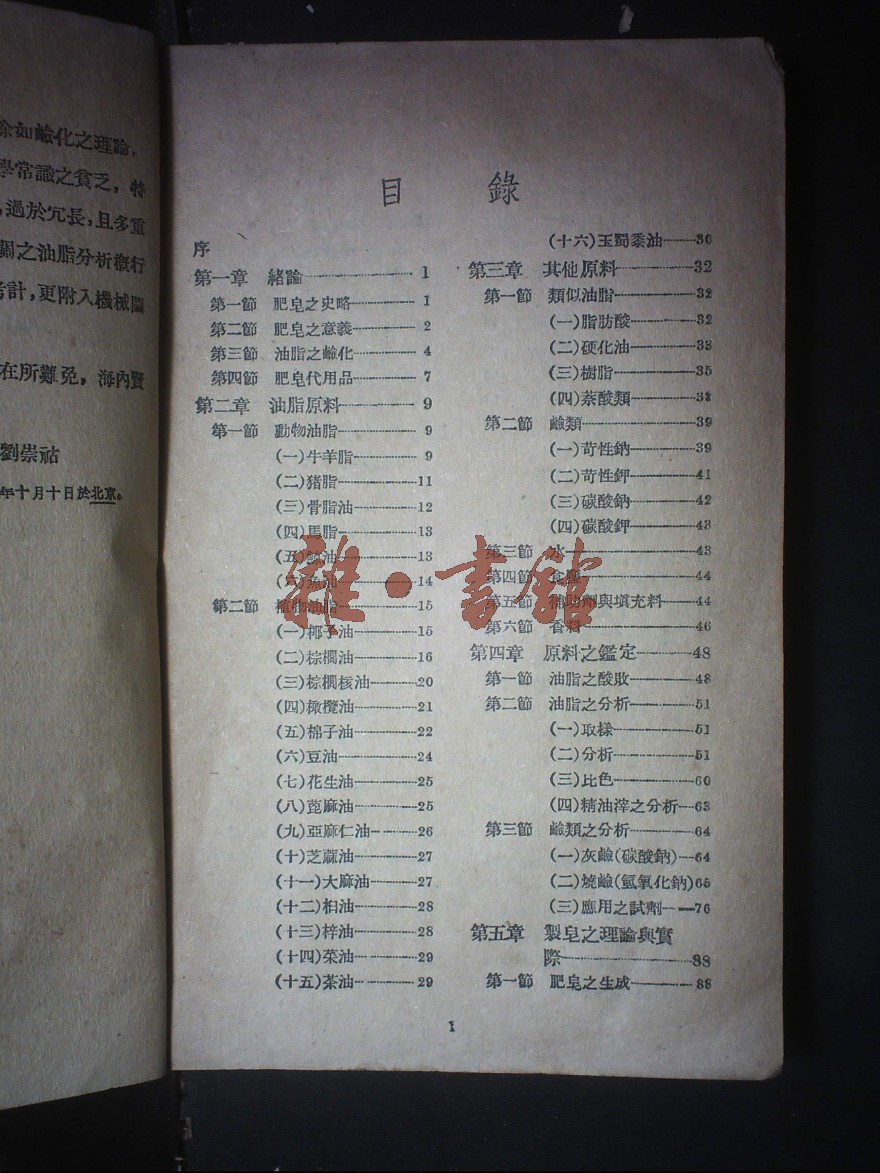 除如鹼化之理論,
學常識之貧乏,特
,過於冗長,且多重
關之油脂分析檄行
考計,更附入機械圖
在所難免,海內賢
劉崇祜
年十月十日於北京。
目 錄
序
第一章 緒論 1
第一節 肥皂之史略 1
第二節 肥皂之意義 2
第三節 油脂之鹼化 4
第四節 肥皂代用品 7
第二章 油脂原料 9
第一節 動物油脂 9
(一)牛羊脂 9
(二)猪脂 11
(三)骨脂油 12
(四)馬脂 13
(五)油 13
(六)魚油 14
第二節 植物油脂 15
(一)椰子油 15
(二)棕櫚油 16
(三)棕櫚核油 20
(四)橄欖油 21
(五)棉子油 22
(六)豆油 24
(七)花生油 25
(八)蓖麻油 25
(九)亞麻仁油 26
(十)芝蔴油 27
(十一)大麻油 27
(十二)桕油 28
(十三)梓油 28
(十四)菜油 29
(十五)茶油 29
(十六)玉蜀黍油 30
第三章 其他原料 32
第一節 類似油脂 32
(一)脂肪酸 32
(二)硬化油 33
(三)樹脂 35
(四)萘酸類 38
第二節 鹼類 39
(一)苛性鈉 39
(二)苛性鉀 41
(三)碳酸鈉 42
(四)碳酸鉀 43
第三節 水 43
第四節 食鹽 44
第五節 補助劑與填充料 44
第六節 香料 46
第四章 原料之鑑定 48
第一節 油脂之酸敗 48
第二節 油脂之分析 51
(一)取樣 51
(二)分析 51
(三)比色 60
(四)精油滓之分析 63
第三節 鹼類之分析 64
(一)灰鹼(碳酸鈉) 64
(二)燒鹼(氫氧化鈉)65
(三)應用之試劑 76
第五章 製皂之理論與實
際 88
第一節 肥皂之生成 88
1
雜·書館